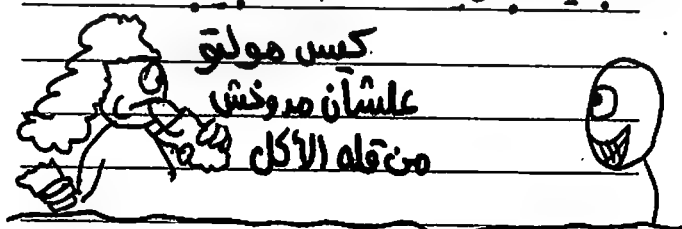 كيس مولتو
علشان مدوخش
من قلة الأكل